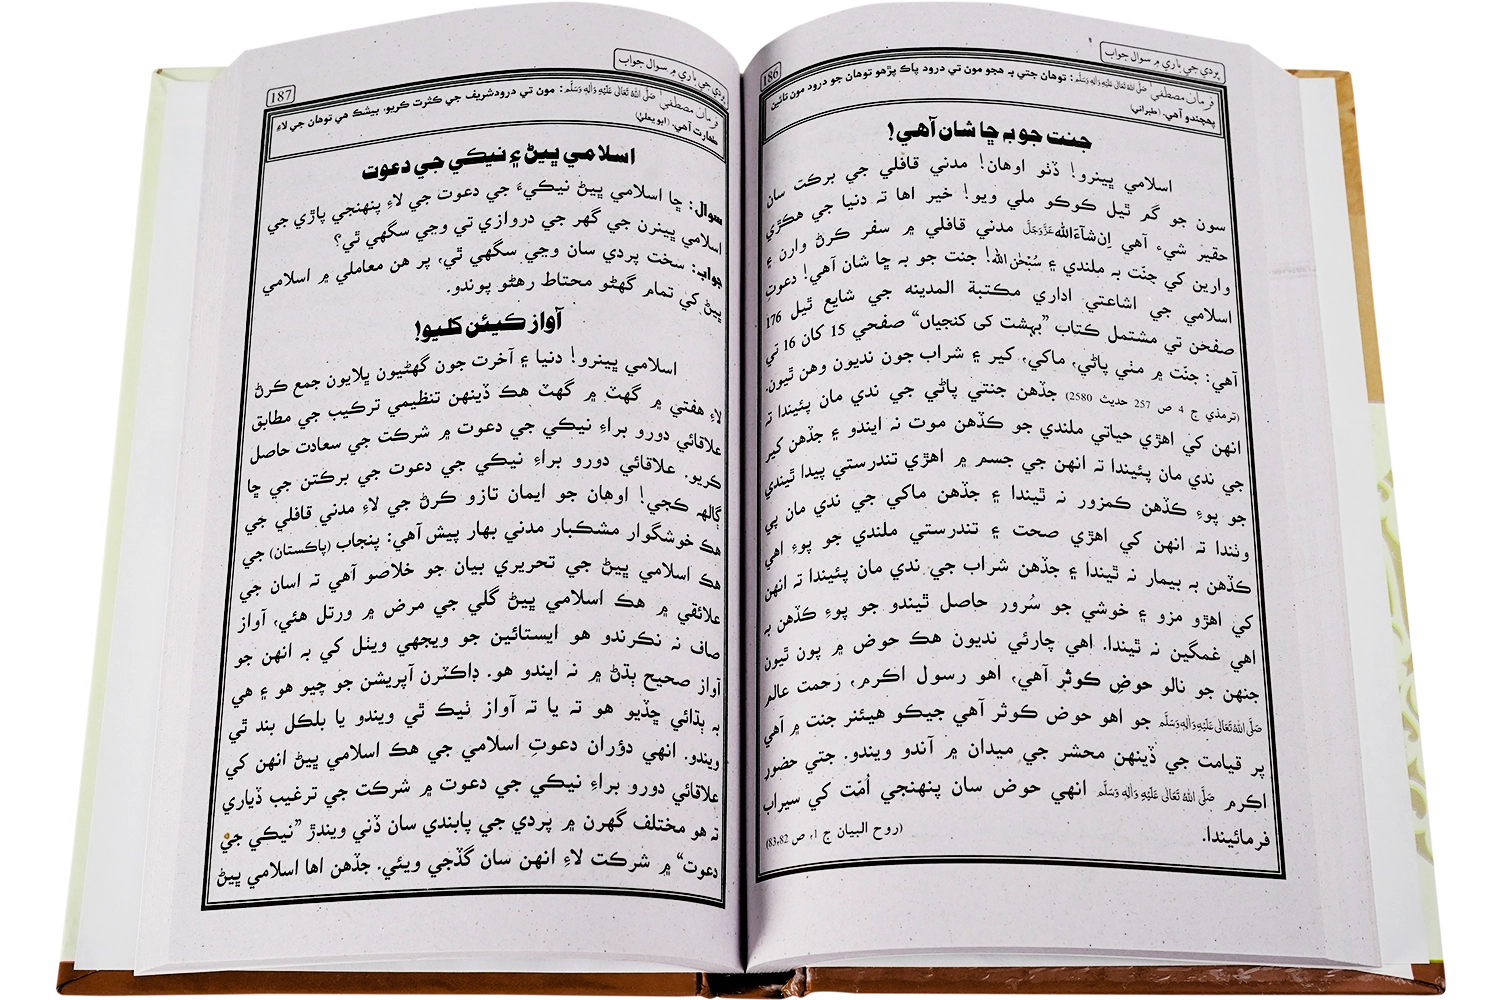 پردي جي باري ۾ سوال جواب
186
فرمان مصطفيٰ صَلَّى اللهُ تَعَالٰى عَلَيْهِ وَاٰلِهٖ وَسَلَّم: توهان جتي به هجو مون تي درود پاڪ پڙهو توهان جو درود مون تائين
پهچندو آهي. (طبراني)
جنت جو به ڇا شان آهي!
اسلامي ڀينرو! ڏٺو اوهان! مدني قافلي جي برڪت سان
سون جو گم ٿيل ڪوڪو ملي ويو! خير اها ته دنيا جي هڪڙي
حقير شيء آهي اِن شآءَالله عَزَّوَجَلَّ مدني قافلي ۾ سفر ڪرڻ وارن ۽
وارين کي جنّت به ملندي ۽ سُبْحٰنَ الله! جنت جو به ڇا شان آهي! دعوتِ
اسلامي جي اشاعتي اداري مڪتبة المدينه جي شايع ٿيل 176
صفحن تي مشتمل ڪتاب ”بہشت کی کنجیاں“ صفحي 15 کان 16 تي
آهي: جنّت ۾ مٺي پاڻي، ماکي، کير ۽ شراب جون نديون وهن ٿيون.
(ترمذي ج 4 ص 257 حديث 2580) جڏهن جنتي پاڻي جي ندي مان پئيندا ته
انهن کي اهڙي حياتي ملندي جو ڪڏهن موت نہ ايندو ۽ جڏهن کير
جي ندي مان پئيندا ته انهن جي جسم ۾ اهڙي تندرستي پيدا ٿيندي
جو پوءِ ڪڏهن ڪمزور نہ ٿيندا ۽ جڏهن ماکي جي ندي مان پي
وٺندا ته انهن کي اهڙي صحت ۽ تندرستي ملندي جو پوءِ اهي
ڪڏهن به بيمار نہ ٿيندا ۽ جڏهن شراب جي ندي مان پئيندا ته انهن
کي اهڙو مزو ۽ خوشي جو سُرور حاصل ٿيندو جو پوءِ ڪڏهن به
اهي غمگين نہ ٿيندا. اهي چارئي نديون هڪ حوض ۾ پون ٿيون
جنهن جو نالو حوضِ ڪوثر آهي، اهو رسول اڪرم، رَحمت عالم
صَلَّى اللهُ تَعَالٰى عَلَيْهِ وَاٰلِهٖ وَسَلَّم جو اهو حوض ڪوثر آهي جيڪو هيئنر جنت ۾ آهي
پر قيامت جي ڏينهن محشر جي ميدان ۾ آندو ويندو. جتي حضور
اڪرم صَلَّى اللهُ تَعَالٰى عَلَيْهِ وَاٰلِهٖ وَسَلَّم انهي حوض سان پنهنجي اُمّت کي سيراب
فرمائيندا. (روح البيان ج 1، ص 83،82)
پردي جي باري ۾ سوال جواب
187
فرمان مصطفيٰ صَلَّى اللهُ تَعَالٰى عَلَيْهِ وَاٰلِهٖ وَسَلَّم: مون تي درودشريف جي ڪثرت ڪريو، بيشڪ هي توهان جي لاءِ
طهارت آهي. (ابو يعليٰ)
اسلامي ڀيڻ ۽ نيڪي جي دعوت
سوال: ڇا اسلامي ڀيڻ نيڪيءَ جي دعوت جي لاءِ پنهنجي پاڙي جي
اسلامي ڀينرن جي گهر جي دروازي تي وڃي سگهي ٿي؟
جواب: سخت پردي سان وڃي سگهي ٿي، پر هن معاملي ۾ اسلامي
ڀيڻ کي تمام گهڻو محتاط رهڻو پوندو.
آواز ڪيئن کليو!
اسلامي ڀينرو! دنيا ۽ آخرت جون گهڻيون ڀلايون جمع ڪرڻ
لاءِ هفتي ۾ گهٽ ۾ گهٽ هڪ ڏينهن تنظيمي ترڪيب جي مطابق
علاقائي دورو براءِ نيڪي جي دعوت ۾ شرڪت جي سعادت حاصل
ڪريو. علاقائي دورو براءِ نيڪي جي دعوت جي برڪتن جي ڇا
ڳالهہ ڪجي! اوهان جو ايمان تازو ڪرڻ جي لاءِ مدني قافلي جي
هڪ خوشگوار مشڪبار مدني بهار پيش آهي: پنجاب (پاڪستان) جي
هڪ اسلامي ڀيڻ جي تحريري بيان جو خلاصو آهي ته اسان جي
علائقي ۾ هڪ اسلامي ڀيڻ گلي جي مرض ۾ ورتل هئي، آواز
صاف نہ نڪرندو هو ايستائين جو ويجهي ويٺل کي به انهن جو
آواز صحيح ٻڌڻ ۾ نہ ايندو هو. ڊاڪٽرن آپريشن جو چيو هو ۽ هي
به ٻڌائي ڇڏيو هو ته يا ته آواز ٺيڪ ٿي ويندو يا بلڪل بند ٿي
ويندو. انهي دؤران دعوتِ اسلامي جي هڪ اسلامي ڀيڻ انهن کي
علاقائي دورو براءِ نيڪي جي دعوت ۾ شرڪت جي ترغيب ڏياري
ته هو مختلف گهرن ۾ پردي جي پابندي سان ڏني ويندڙ ”نيڪي جي
دعوت“ ۾ شرڪت لاءِ انهن سان گڏجي ويئي. جڏهن اها اسلامي ڀيڻ